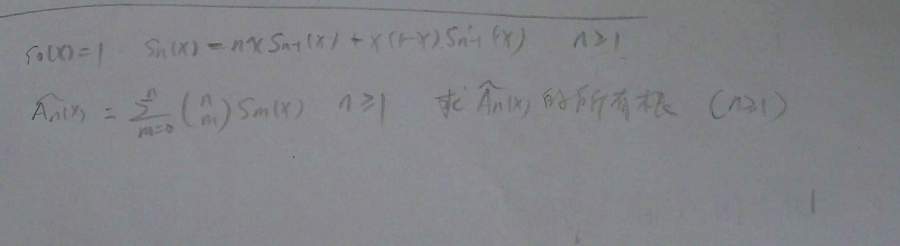 S₀(x)=1 Sₙ(x)=nxSₙ₋₁(x)+x(1-x)S'ₙ₋₁(x) n≥1
Âₙ(x) = ∑ₘ₌₀ⁿ (n m) Sₘ(x) n≥1 求 Âₙ(x) 的所有根 (n≥1)